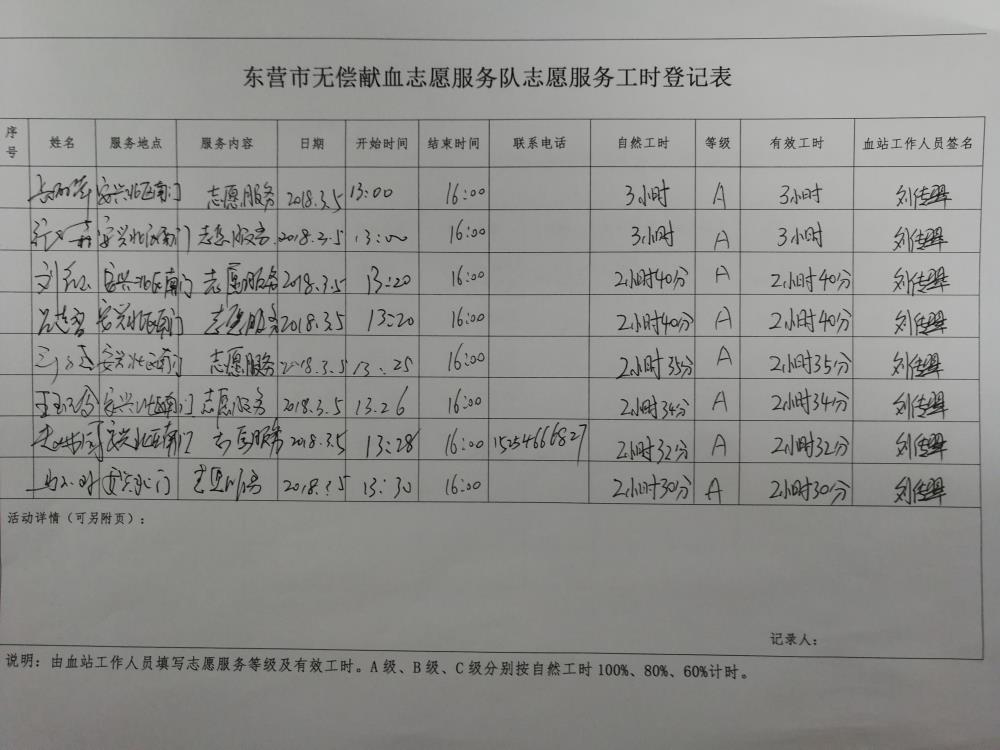 东营市无偿献血志愿服务队志愿服务工时登记表
序号 姓名 服务地点 服务内容 日期 开始时间 结束时间 联系电话 自然工时 等级 有效工时 血站工作人员签名
安兴北区南门 志愿服务 2018.3.5 13:00 16:00 3小时 A 3小时
安兴北区南门 志愿服务 2018.3.5 13:00 16:00 3小时 A 3小时
安兴北区南门 志愿服务 2018.3.5 13:20 16:00 2小时40分 A 2小时40分
安兴北区南门 志愿服务 2018.3.5 13:20 16:00 2小时40分 A 2小时40分
安兴北区南门 志愿服务 2018.3.5 13:25 16:00 2小时35分 A 2小时35分
安兴北区南门 志愿服务 2018.3.5 13.26 16:00 2小时34分 A 2小时34分
安兴北区南门 志愿服务 2018.3.5 13:28 16:00 15254666827 2小时32分 A 2小时32分
志愿服务 13:30 16:00 2小时30分 A 2小时30分
活动详情（可另附页）：
记录人：
说明：由血站工作人员填写志愿服务等级及有效工时。A级、B级、C级分别按自然工时100%、80%、60%计时。